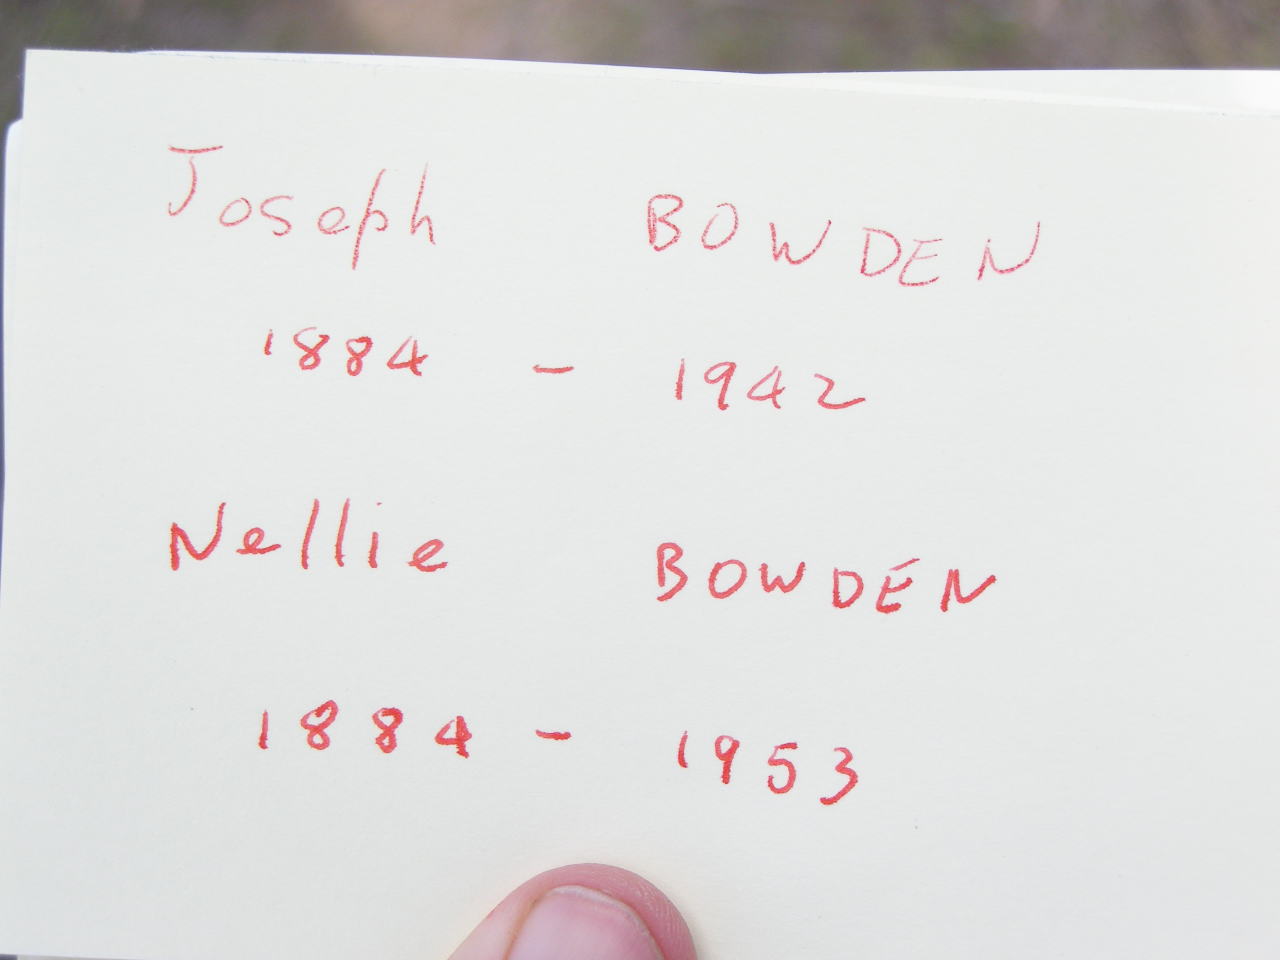 Joseph BOWDEN
1884 - 1942
Nellie BOWDEN
1884 - 1953